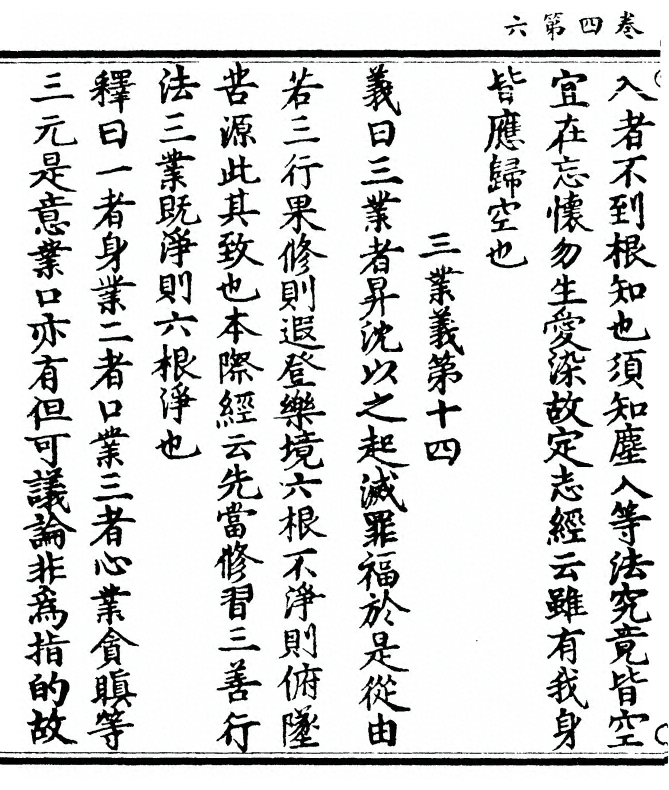 六第四卷
入者不到根知也須知塵入等法究竟皆空
宜在忘懷勿生愛染故定志經云雖有我身
皆應歸空也
三業義第十四
義曰三業者昇沈以之起滅罪福於是從由
若三行果修則遐登樂境六根不淨則俯墜
苦源此其致也本際經云先當修習三善行
法三業既淨則六根淨也
釋曰一者身業二者口業三者心業貪瞋等
三元是意業口亦有但可議論非爲指的故